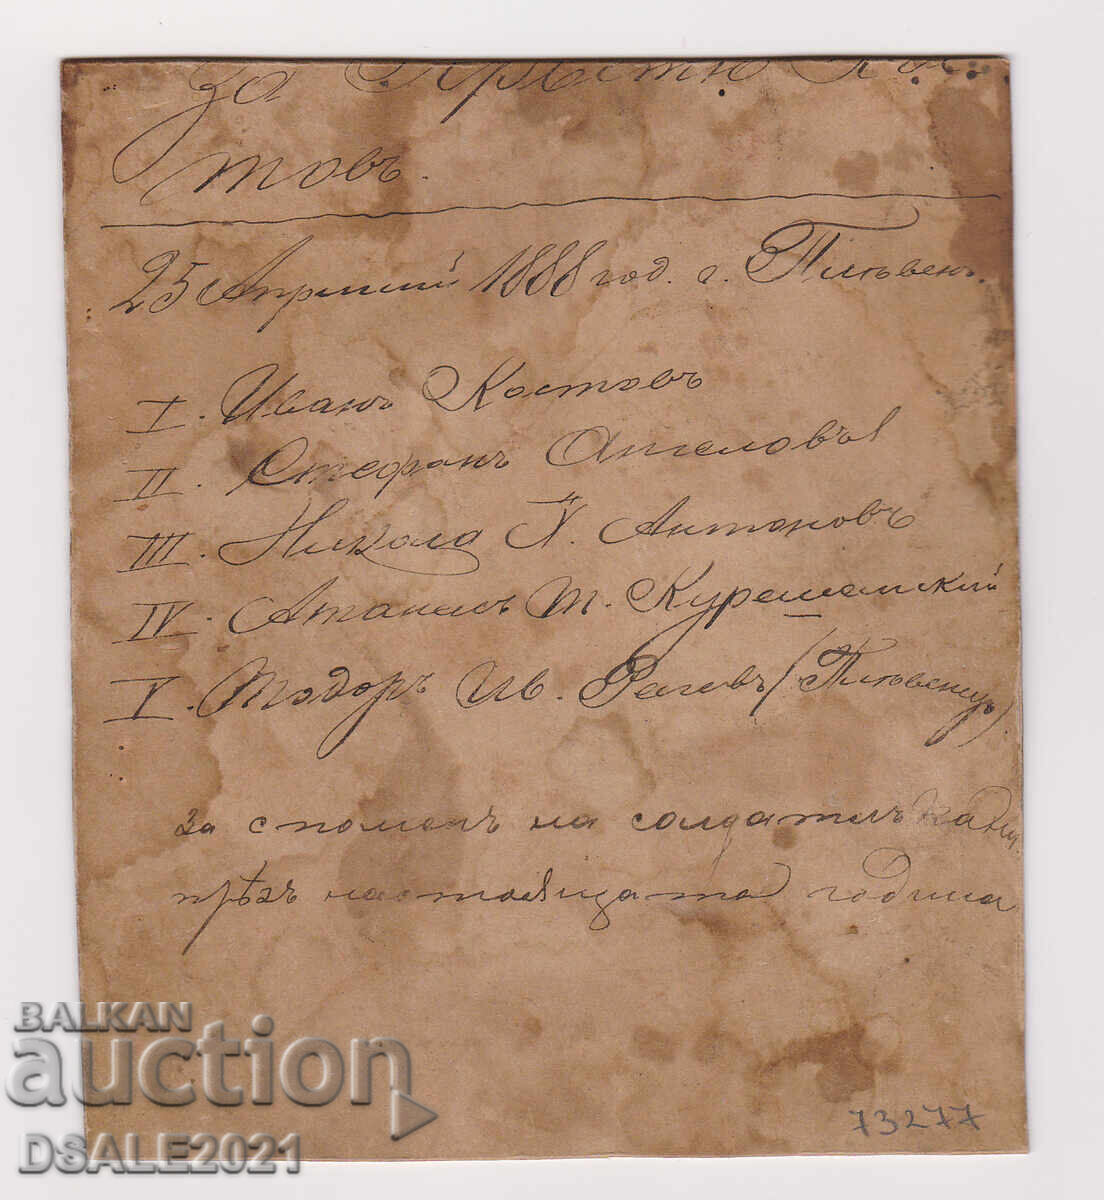 За
товъ.
25 Априлий 1888 год. г. Плѣвенъ
I. Иванъ Костовъ
II. Стефанъ Ангеловъ
III. Никола Х. Антоновъ
IV. Атанасъ Т.
V. Тодоръ Ив. (Плѣвенецъ)
За споменъ на
прѣзъ настоящата година
73277
BALKAN
auction
DSALE2021